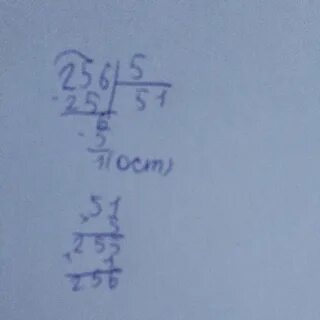 256 5
-25 51
6
-5
1(ост)
51
×5
255
+1
256